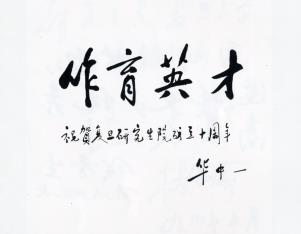 作育英才
祝賀复旦研究生院成立十周年
华中一